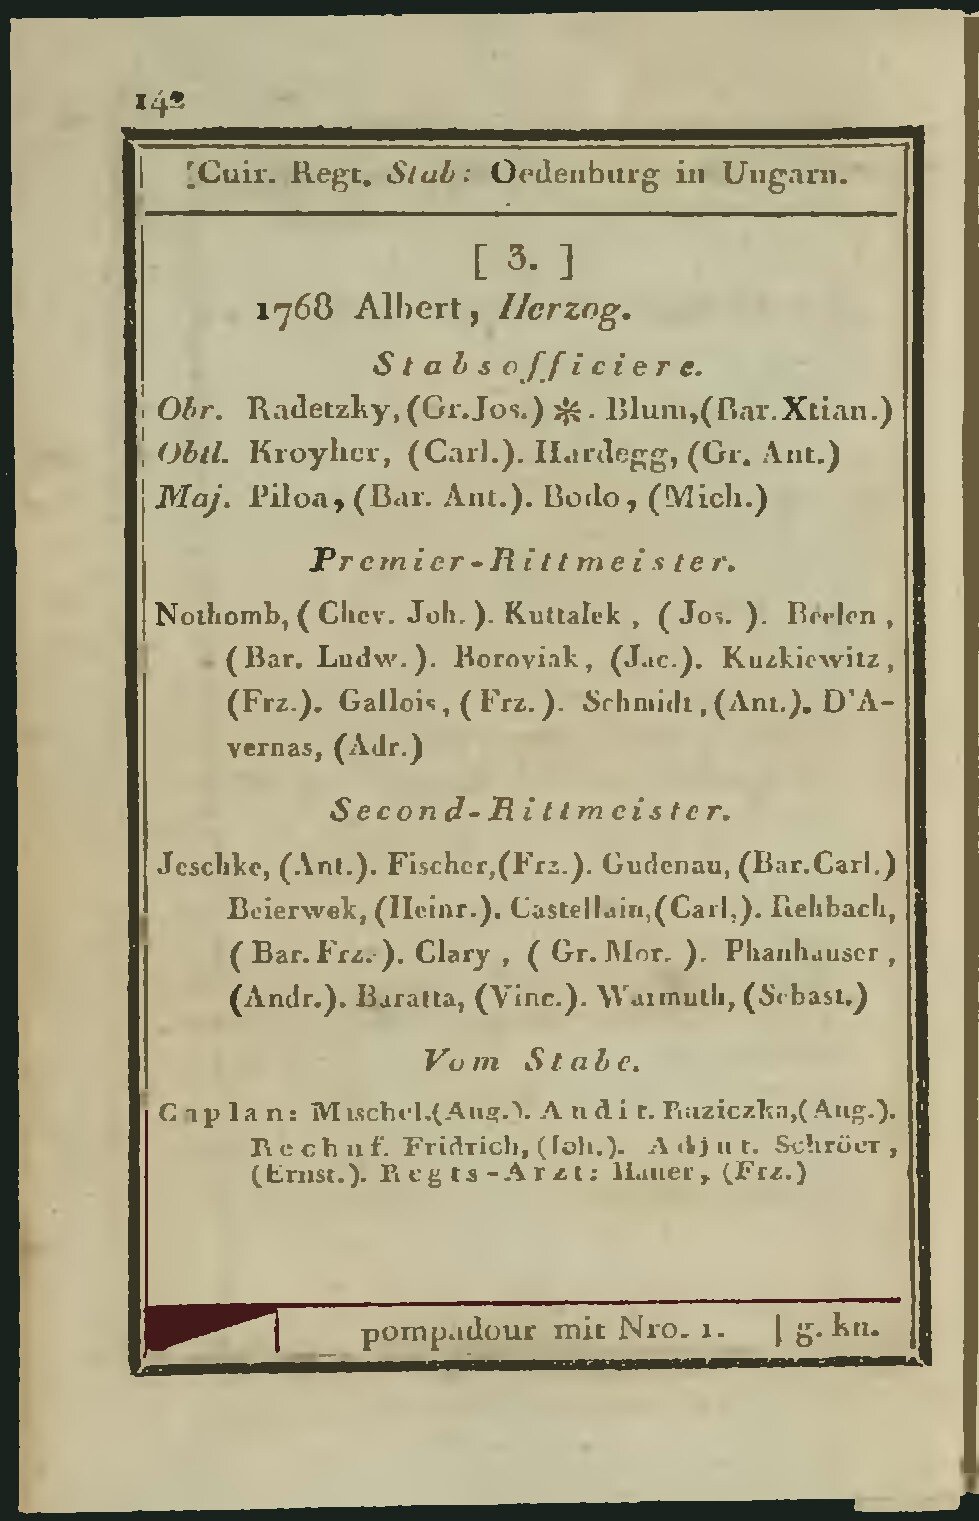 142
Cuir. Regt. Stab: Oedenburg in Ungarn.
[ 3. ]
1768 Albert, Herzog.
Stabsofficiere.
Obr. Radetzky, (Gr. Jos.) ✻. Blum, (Bar. Xtian.)
Obtl. Kroyher, (Carl.). Hardegg, (Gr. Ant.)
Maj. Piloa, (Bar. Ant.). Bodo, (Mich.)
Premier-Rittmeister.
Nothomb, (Chev. Joh.). Kuttalek, (Jos.). Beelen,
(Bar. Ludw.). Boroviak, (Jac.). Kuzkiewitz,
(Frz.). Gallois, (Frz.). Schmidt, (Ant.). D'A-
vernas, (Adr.)
Second-Rittmeister.
Jeschke, (Ant.). Fischer, (Frz.). Gudenau, (Bar. Carl.)
Beierwek, (Heinr.). Castellain, (Carl.). Rehbach,
(Bar. Frz.). Clary, (Gr. Mor.). Phanhauser,
(Andr.). Baratta, (Vinc.). Warmuth, (Sebast.)
Vom Stabe.
Caplan: Mischel. (Aug.). Audit. Ruziczka, (Aug.).
Rechnf. Fridrich, (Joh.). Adjut. Schröer,
(Ernst.). Regts-Arzt: Hauer, (Frz.)
pompadour mit Nro. 1. | g. kn.